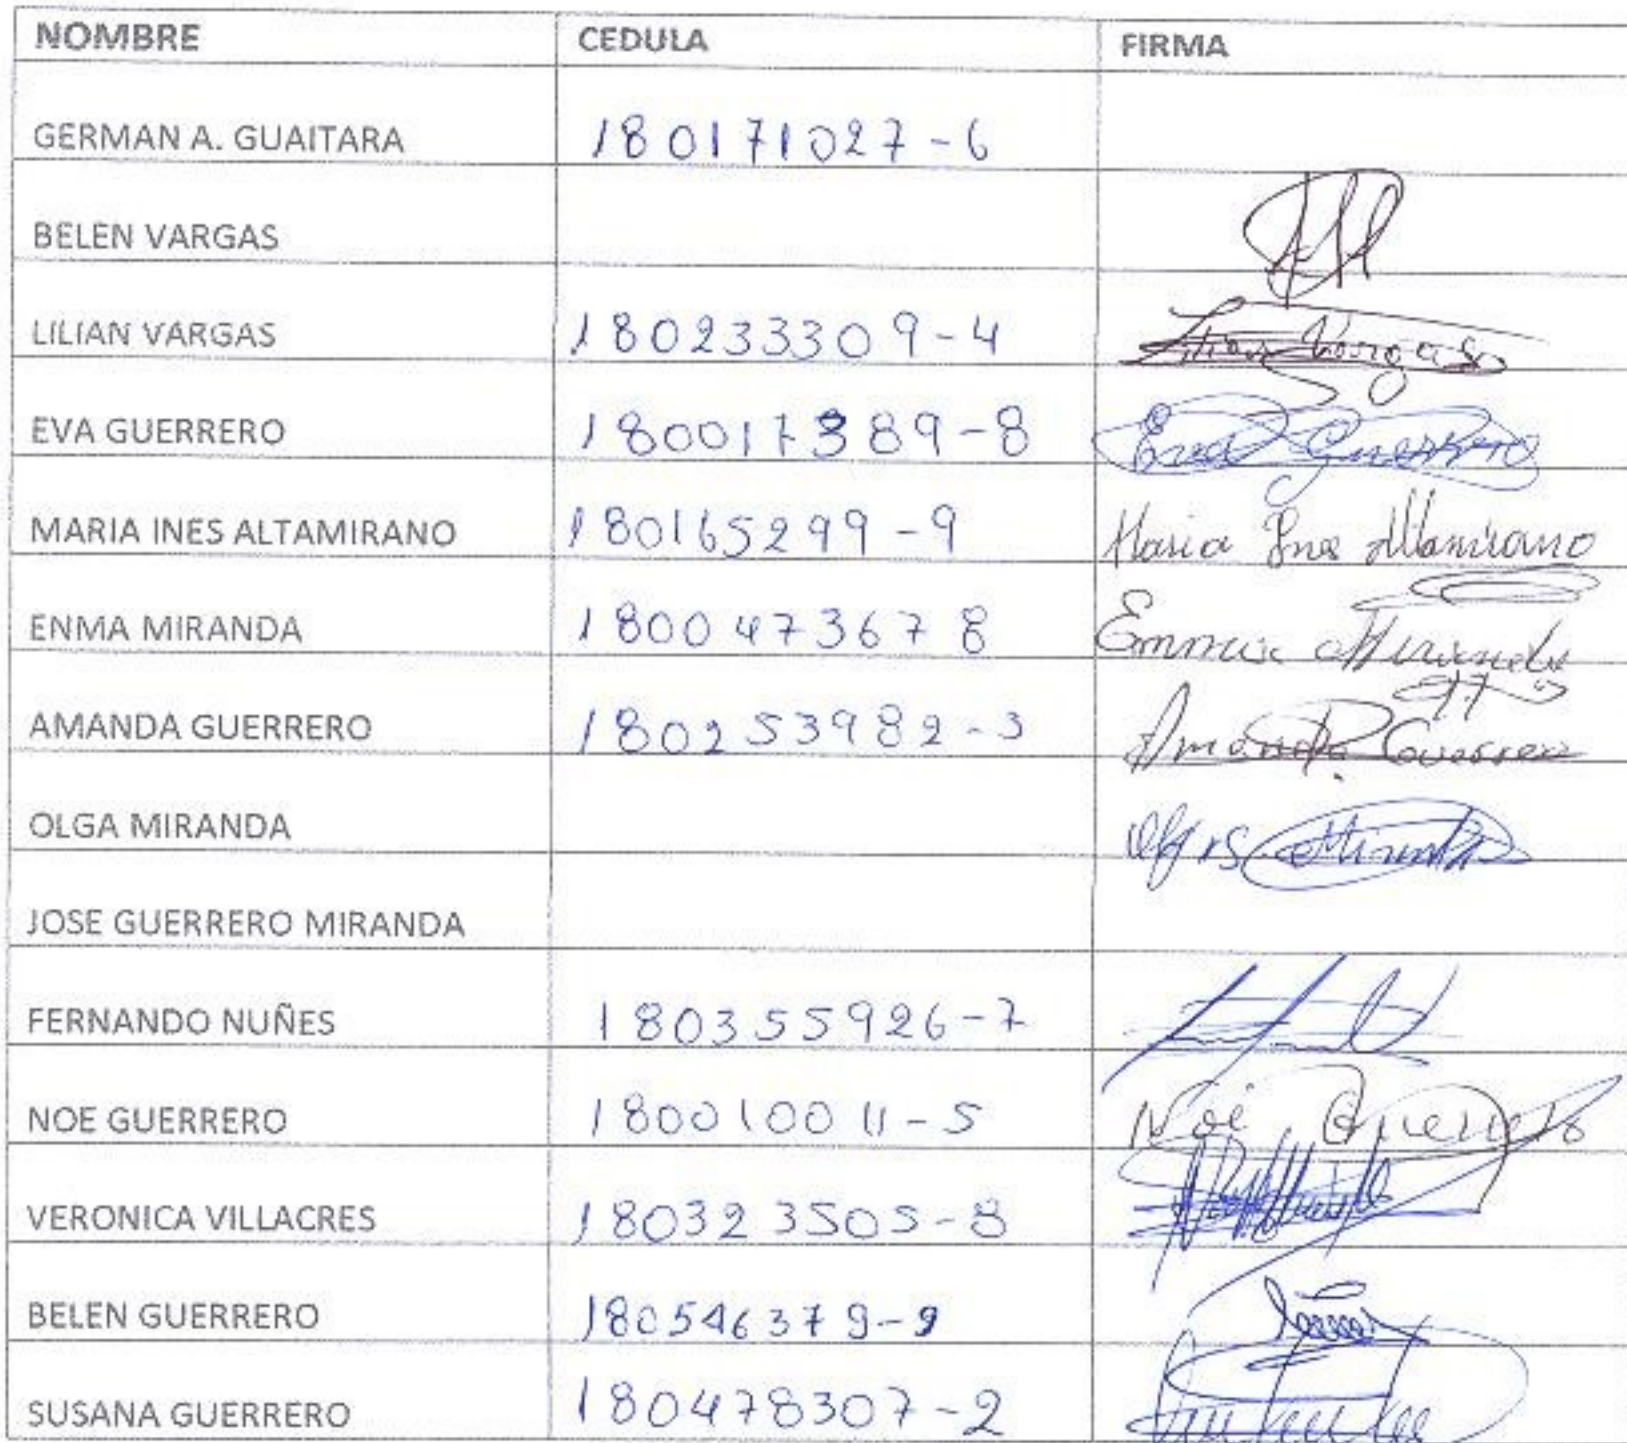 NOMBRE CEDULA FIRMA
GERMAN A. GUAITARA 180171027-6
BELEN VARGAS
LILIAN VARGAS 180233309-4 Lilian Vargas
EVA GUERRERO 180017389-8 Eva Guerrero
MARIA INES ALTAMIRANO 180165299-9 Maria Ines Altamirano
ENMA MIRANDA 180047367 8 Emma Miranda
AMANDA GUERRERO 180253982-3 Amanda Guerrero
OLGA MIRANDA Miranda
JOSE GUERRERO MIRANDA
FERNANDO NUÑES 180355926-7
NOE GUERRERO 180010011-5 Noé Guerrero
VERONICA VILLACRES 180323505-8
BELEN GUERRERO 180546379-9
SUSANA GUERRERO 180478307-2